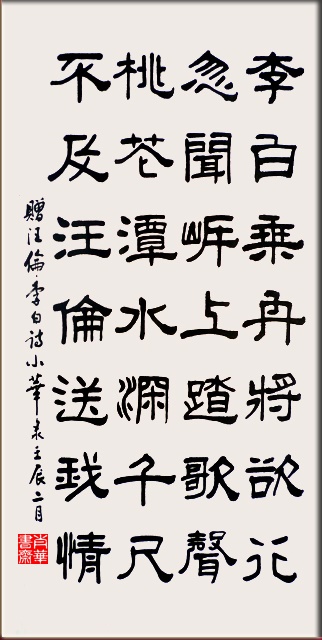 李白乘舟將欲行
忽聞岸上踏歌聲
桃花潭水深千尺
不及汪倫送我情
贈汪倫·李白詩小華隶壬辰二月
華書齋